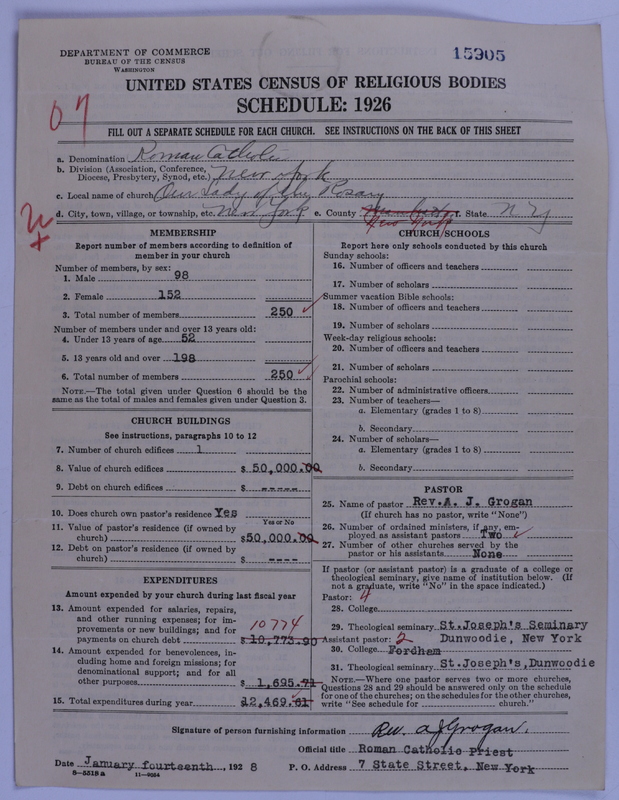 DEPARTMENT OF COMMERCE
BUREAU OF THE CENSUS
WASHINGTON
15905
UNITED STATES CENSUS OF RELIGIOUS BODIES
SCHEDULE: 1926
07
FILL OUT A SEPARATE SCHEDULE FOR EACH CHURCH. SEE INSTRUCTIONS ON THE BACK OF THIS SHEET
a. Denomination Roman Catholic
b. Division (Association, Conference, Diocese, Presbytery, Synod, etc.) New York
c. Local name of church Our Lady of the Rosary
d. City, town, village, or township, etc. New York e. County New York f. State N Y
MEMBERSHIP
Report number of members according to definition of
member in your church
Number of members, by sex:
1. Male 98
2. Female 152
3. Total number of members 250
Number of members under and over 13 years old:
4. Under 13 years of age 52
5. 13 years old and over 198
6. Total number of members 250
NOTE.—The total given under Question 6 should be the
same as the total of males and females given under Question 3.
CHURCH BUILDINGS
See instructions, paragraphs 10 to 12
7. Number of church edifices 1
8. Value of church edifices $ 50,000.00
9. Debt on church edifices $ -----
10. Does church own pastor's residence Yes
Yes or No
11. Value of pastor's residence (if owned by
church) $50,000.00
12. Debt on pastor's residence (if owned by
church) $ ----
EXPENDITURES
Amount expended by your church during last fiscal year
13. Amount expended for salaries, repairs,
and other running expenses; for im-
provements or new buildings; and for
payments on church debt $ 10,773.90
10774
14. Amount expended for benevolences, in-
cluding home and foreign missions; for
denominational support; and for all
other purposes $ 1,695.71
15. Total expenditures during year $ 12,469.61
CHURCH SCHOOLS
Report here only schools conducted by this church
Sunday schools:
16. Number of officers and teachers
17. Number of scholars
Summer vacation Bible schools:
18. Number of officers and teachers
19. Number of scholars
Week-day religious schools:
20. Number of officers and teachers
21. Number of scholars
Parochial schools:
22. Number of administrative officers
23. Number of teachers—
a. Elementary (grades 1 to 8)
b. Secondary
24. Number of scholars—
a. Elementary (grades 1 to 8)
b. Secondary
PASTOR
25. Name of pastor Rev.A. J. Grogan
(If church has no pastor, write "None")
26. Number of ordained ministers, if any, em-
ployed as assistant pastors Two
27. Number of other churches served by the
pastor or his assistants None
If pastor (or assistant pastor) is a graduate of a college or
theological seminary, give name of institution below. (If
not a graduate, write "No" in the space indicated.)
Pastor: 4
28. College
29. Theological seminary St.Joseph's Seminary
Dunwoodie, New York
Assistant pastor: 2
30. College Fordham
31. Theological seminary St.Joseph's,Dunwoodie
NOTE.—Where one pastor serves two or more churches,
Questions 28 and 29 should be answered only on the schedule
for one of the churches; on the schedules for the other churches,
write "See schedule for church."
Signature of person furnishing information Rev. A J Grogan.
Official title Roman Catholic Priest
Date January fourteenth, 1928 P. O. Address 7 State Street, New York
8-5318 a 11-9054